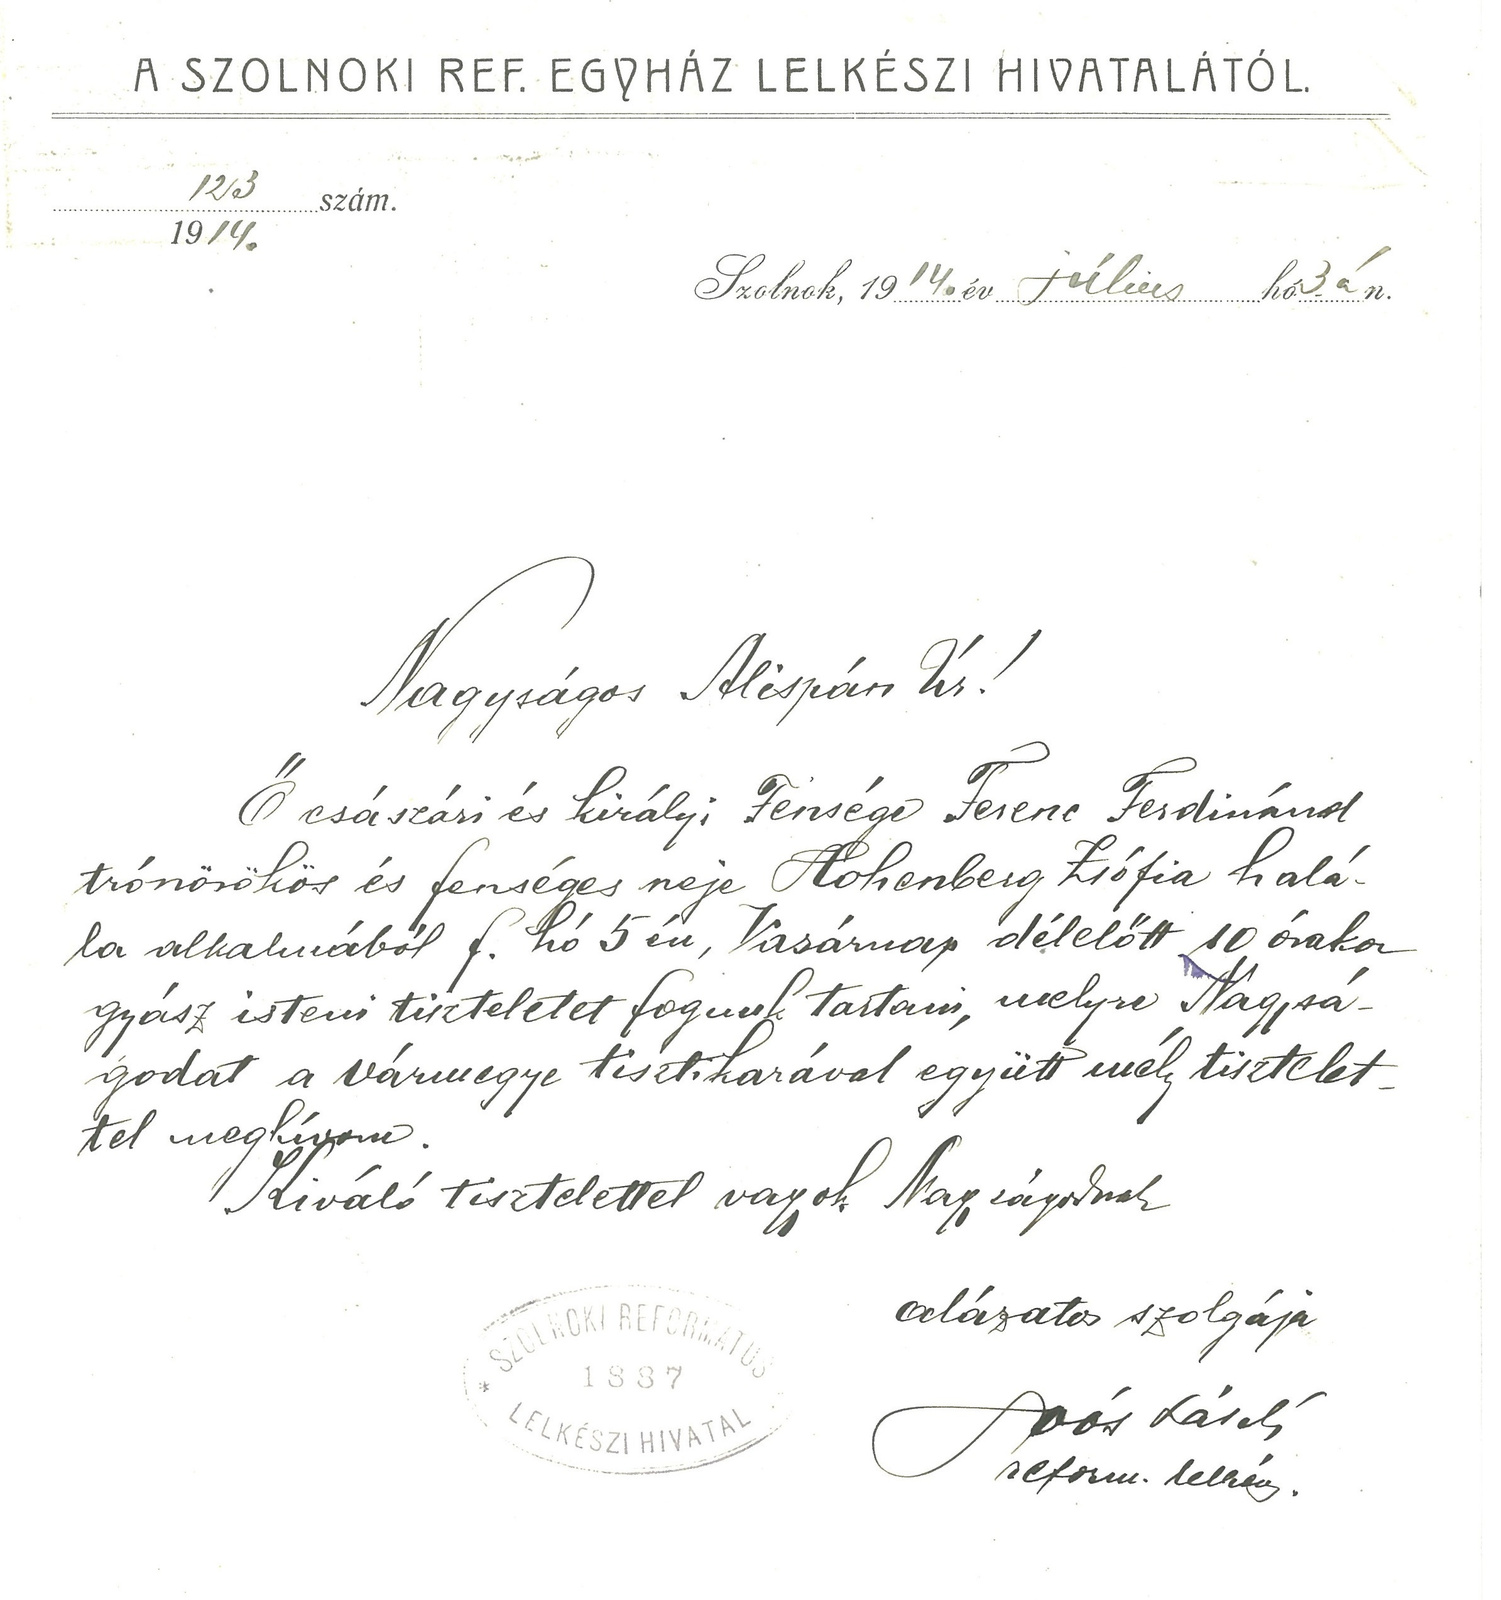 A SZOLNOKI REF. EGYHÁZ LELKÉSZI HIVATALÁTÓL.
123 szám.
1914.
Szolnok, 1914. év július hó 3 án.
Nagyságos Alispán Úr!
Ő császári és királyi Fensége Ferenc Ferdinánd
trónörökös és fenséges neje Hohenberg Zsófia halá-
la alkalmából f. hó 5 én, Vasárnap délelőtt 10 órakor
gyász isteni tiszteletet fogunk tartani, melyre Nagysá-
godat a vármegye tisztikarával együtt mély tisztelet-
tel meghívom.
Kiváló tisztelettel vagyok Nagyságodnak
alázatos szolgája
László
reform. lelkész.
* SZOLNOKI REFORMATUS
1887
LELKÉSZI HIVATAL